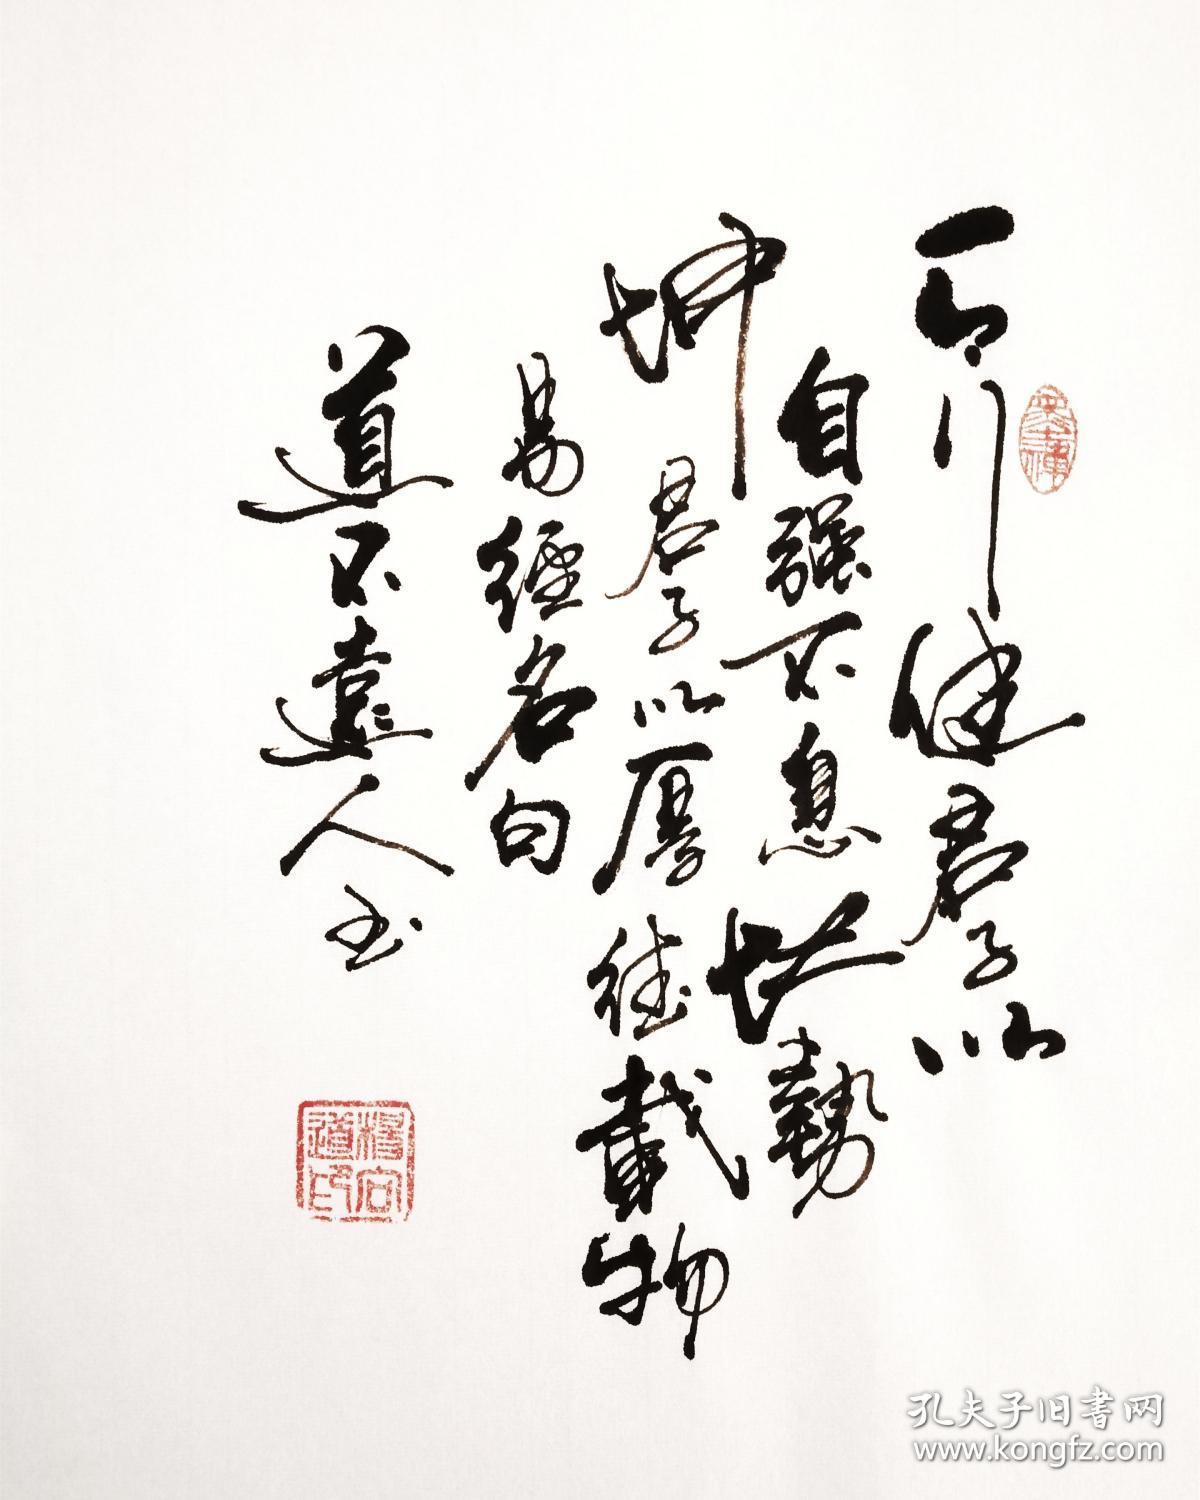 天行健君子以
自强不息地勢
坤君子以厚德載物
易經名句
道不遠人书
孔夫子旧書网
www.kongfz.com